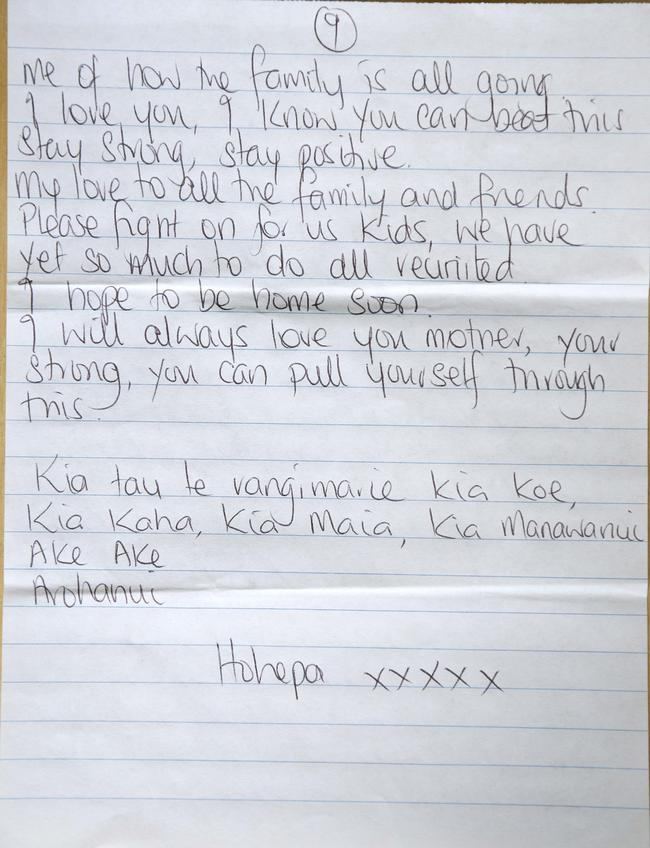 9
me of how the family is all going
I love you, I know you can beat this
stay strong, stay positive.
my love to all the family and friends.
Please fight on for us kids, we have
yet so much to do all reunited
I hope to be home soon.
I will always love you mother, your
strong, you can pull yourself through
this.
Kia tau te rangimarie kia koe,
Kia Kaha, Kia Maia, Kia Manawanui
Ake Ake
Arohanui
Hohepa xxxxx